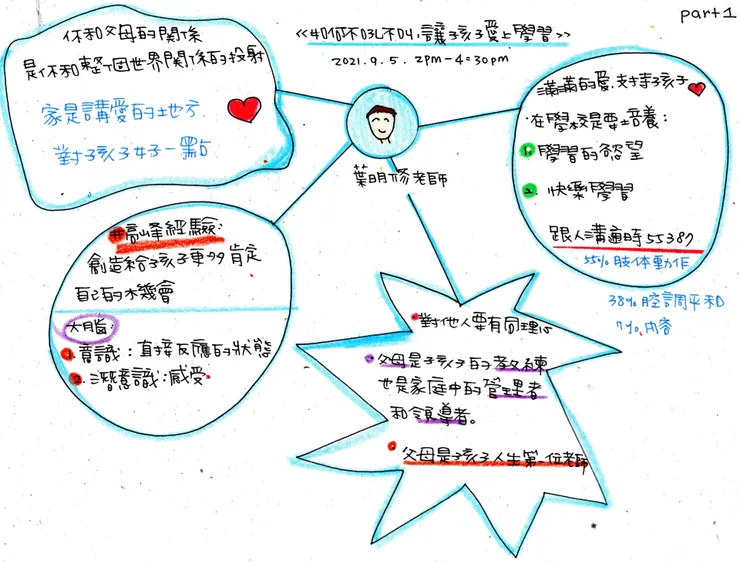 part 1
<<如何不吼不叫,讓孩子愛上學習>>
2021.9.5. 2pm-4:30pm
你和父母的關係
是你和整個世界關係的投射
家是講愛的地方
對孩子好一點
葉明修老師
滿滿的愛,支持孩子
在學校是要培養:
1. 學習的慾望
2. 快樂學習
跟人溝通時55387
55%肢体動作
38%腔調平和
7%內容
#高峰經驗:
創造給孩子更多肯定
自己的機會
大腦:
1. 意識:直接反應的狀態
2. 潛意識:感受
對他人要有同理心
父母是孩子的教練
也是家庭中的管理者
和領導者。
父母是孩子人生第一位老師